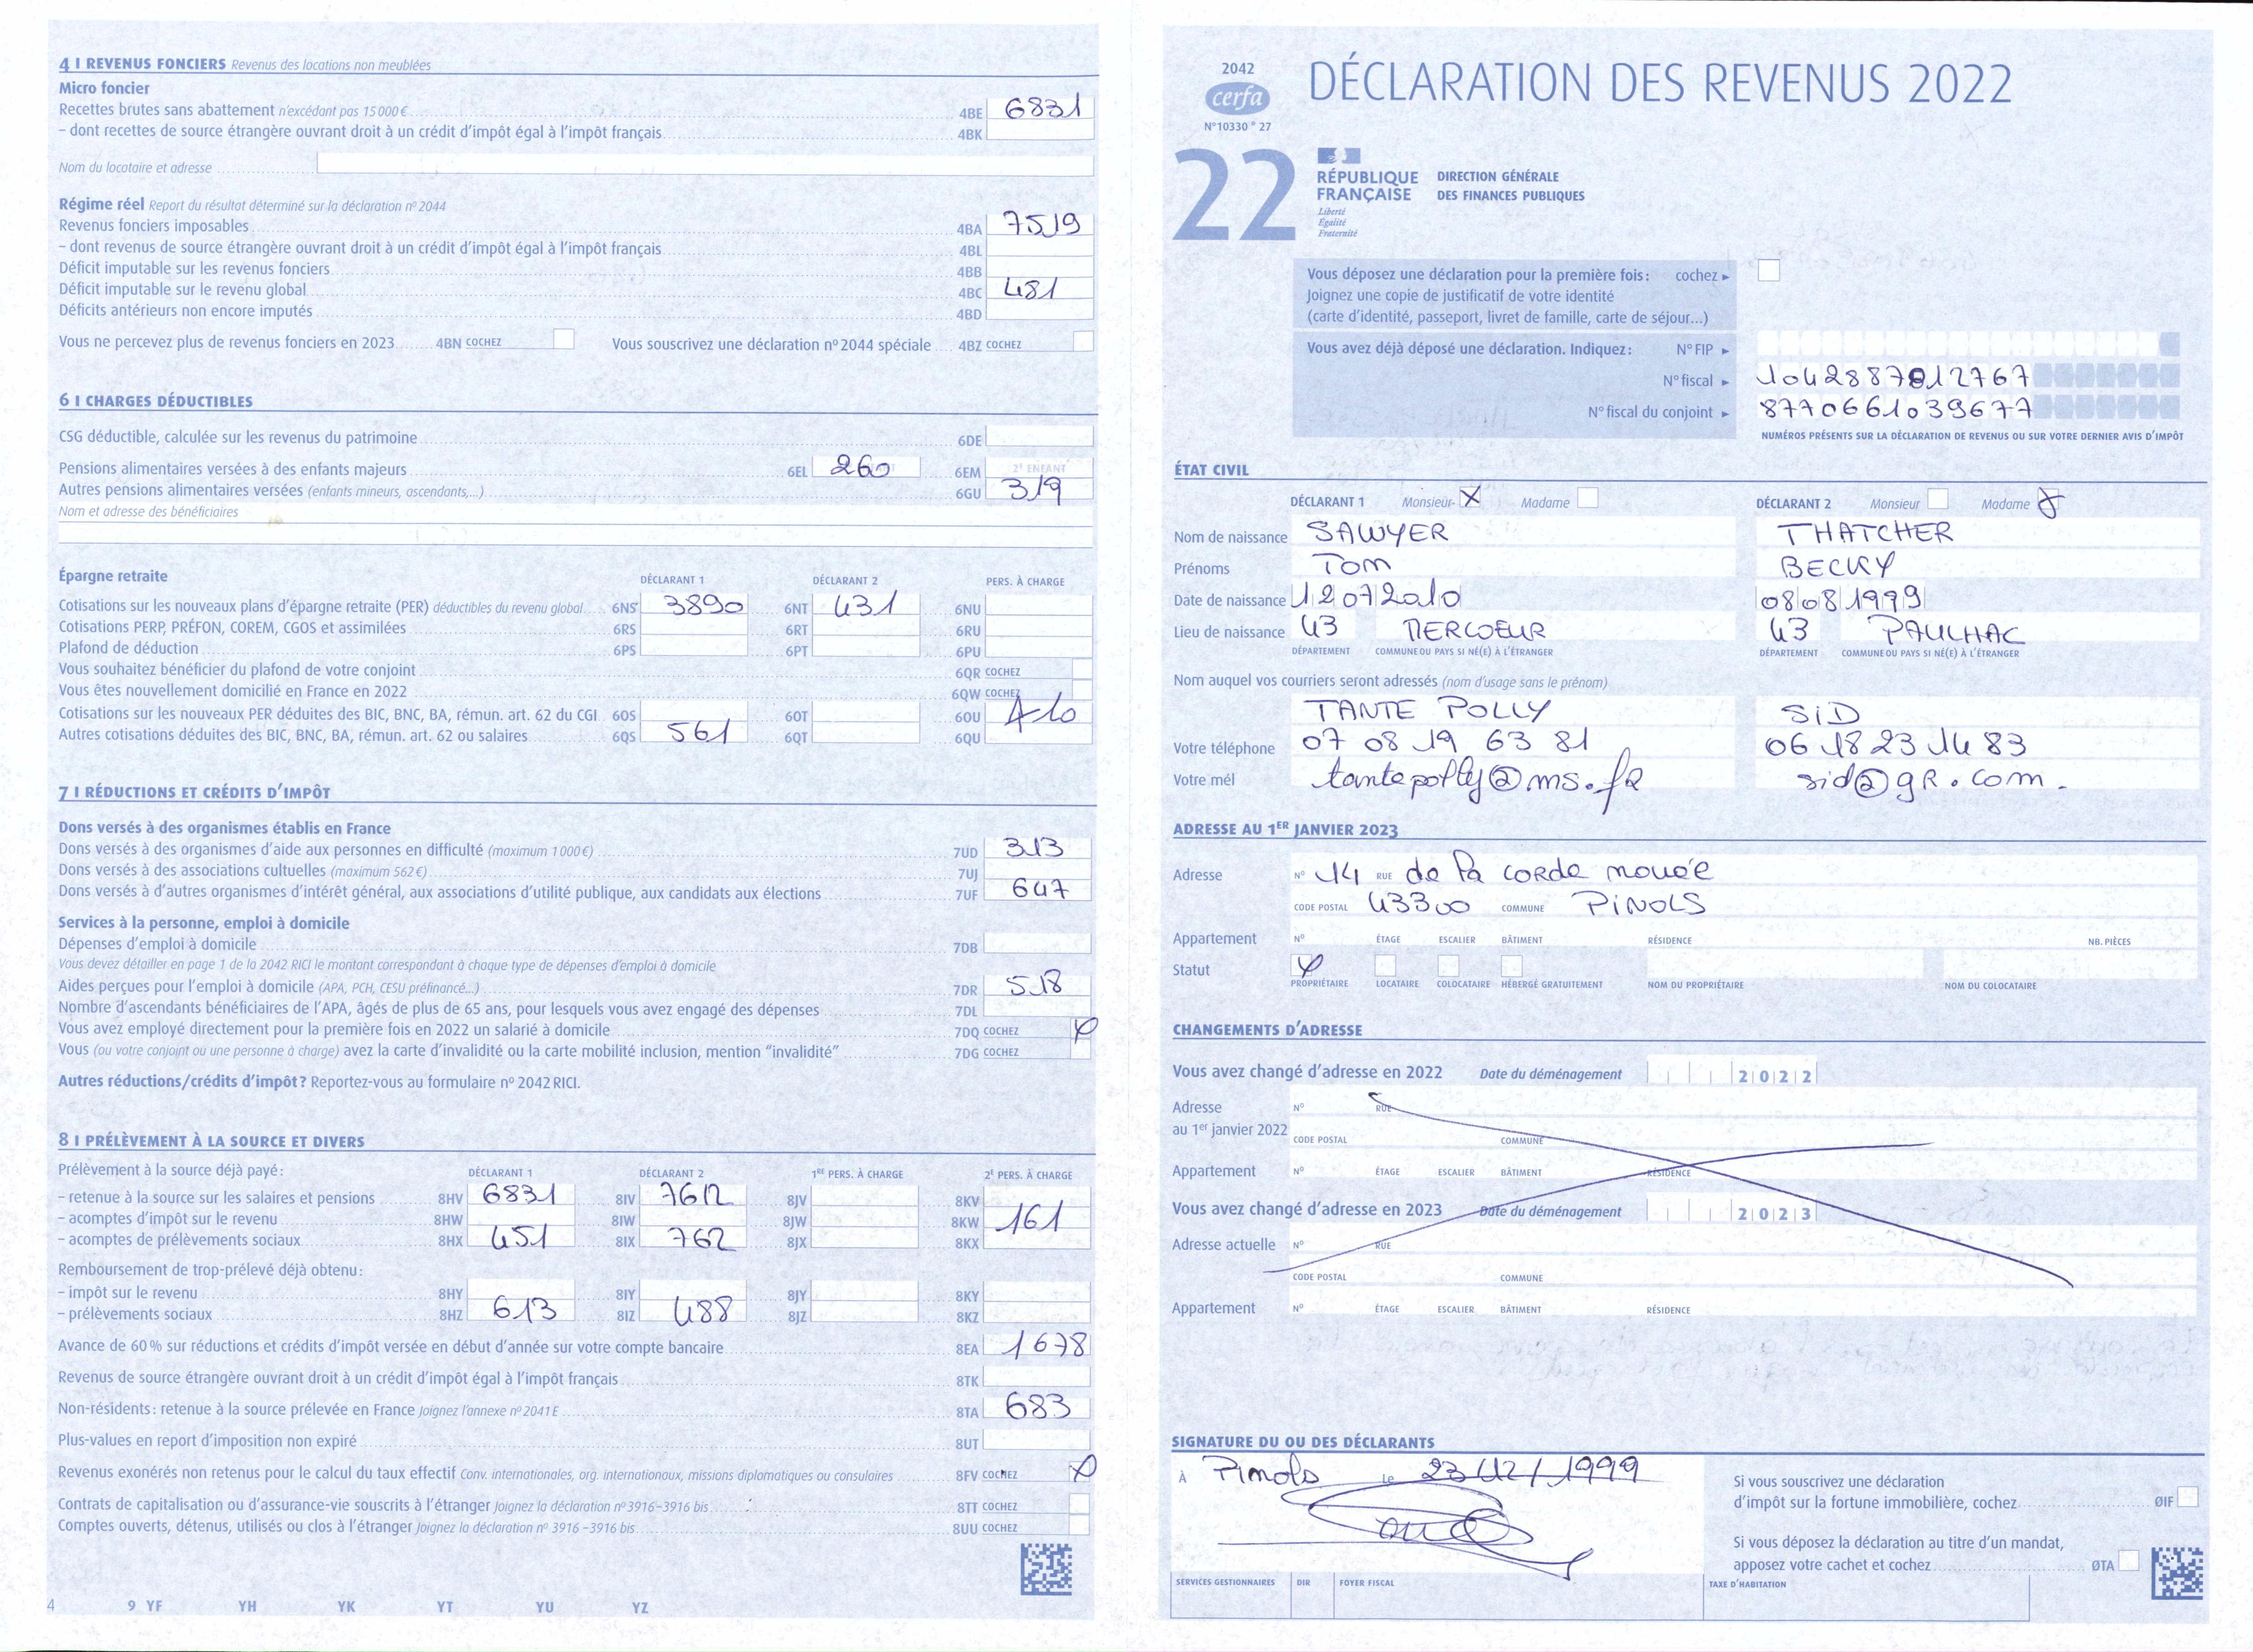 4 I REVENUS FONCIERS Revenus des locations non meublées
Micro foncier
Recettes brutes sans abattement n'excédant pas 15 000 € 4BE 6831
– dont recettes de source étrangère ouvrant droit à un crédit d'impôt égal à l'impôt français 4BK
Nom du locataire et adresse
Régime réel Report du résultat déterminé sur la déclaration nº 2044
Revenus fonciers imposables 4BA 7519
– dont revenus de source étrangère ouvrant droit à un crédit d'impôt égal à l'impôt français 4BL
Déficit imputable sur les revenus fonciers 4BB
Déficit imputable sur le revenu global 4BC 481
Déficits antérieurs non encore imputés 4BD
Vous ne percevez plus de revenus fonciers en 2023 4BN COCHEZ Vous souscrivez une déclaration nº 2044 spéciale 4BZ COCHEZ
6 I CHARGES DÉDUCTIBLES
CSG déductible, calculée sur les revenus du patrimoine 6DE
Pensions alimentaires versées à des enfants majeurs 6EL 260 6EM 2E ENFANT
Autres pensions alimentaires versées (enfants mineurs, ascendants,...) 6GU 319
Nom et adresse des bénéficiaires
Épargne retraite DÉCLARANT 1 DÉCLARANT 2 PERS. À CHARGE
Cotisations sur les nouveaux plans d'épargne retraite (PER) déductibles du revenu global 6NS 3890 6NT 431 6NU
Cotisations PERP, PRÉFON, COREM, CGOS et assimilées 6RS 6RT 6RU
Plafond de déduction 6PS 6PT 6PU
Vous souhaitez bénéficier du plafond de votre conjoint 6QR COCHEZ
Vous êtes nouvellement domicilié en France en 2022 6QW COCHEZ
Cotisations sur les nouveaux PER déduites des BIC, BNC, BA, rémun. art. 62 du CGI 6OS 6OT 6OU
Autres cotisations déduites des BIC, BNC, BA, rémun. art. 62 ou salaires 6QS 561 6QT 6QU
7 I RÉDUCTIONS ET CRÉDITS D'IMPÔT
Dons versés à des organismes établis en France
Dons versés à des organismes d'aide aux personnes en difficulté (maximum 1 000 €) 7UD 313
Dons versés à des associations cultuelles (maximum 562 €) 7UJ
Dons versés à d'autres organismes d'intérêt général, aux associations d'utilité publique, aux candidats aux élections 7UF 647
Services à la personne, emploi à domicile
Dépenses d'emploi à domicile 7DB
Vous devez détailler en page 1 de la 2042 RICI le montant correspondant à chaque type de dépenses d'emploi à domicile
Aides perçues pour l'emploi à domicile (APA, PCH, CESU préfinancé...) 7DR 518
Nombre d'ascendants bénéficiaires de l'APA, âgés de plus de 65 ans, pour lesquels vous avez engagé des dépenses 7DL
Vous avez employé directement pour la première fois en 2022 un salarié à domicile 7DQ COCHEZ
Vous (ou votre conjoint ou une personne à charge) avez la carte d'invalidité ou la carte mobilité inclusion, mention "invalidité" 7DG COCHEZ
Autres réductions/crédits d'impôt ? Reportez-vous au formulaire nº 2042 RICI.
8 I PRÉLÈVEMENT À LA SOURCE ET DIVERS
Prélèvement à la source déjà payé : DÉCLARANT 1 DÉCLARANT 2 1RE PERS. À CHARGE 2E PERS. À CHARGE
– retenue à la source sur les salaires et pensions 8HV 6831 8IV 7612 8JV 8KV
– acomptes d'impôt sur le revenu 8HW 8IW 8JW 8KW 161
– acomptes de prélèvements sociaux 8HX 451 8IX 762 8JX 8KX
Remboursement de trop-prélevé déjà obtenu :
– impôt sur le revenu 8HY 8IY 8JY 8KY
– prélèvements sociaux 8HZ 613 8IZ 488 8JZ 8KZ
Avance de 60 % sur réductions et crédits d'impôt versée en début d'année sur votre compte bancaire 8EA 1678
Revenus de source étrangère ouvrant droit à un crédit d'impôt égal à l'impôt français 8TK
Non-résidents : retenue à la source prélevée en France Joignez l'annexe nº 2041 E 8TA 683
Plus-values en report d'imposition non expiré 8UT
Revenus exonérés non retenus pour le calcul du taux effectif Conv. internationales, org. internationaux, missions diplomatiques ou consulaires 8FV COCHEZ
Contrats de capitalisation ou d'assurance-vie souscrits à l'étranger Joignez la déclaration nº 3916–3916 bis 8TT COCHEZ
Comptes ouverts, détenus, utilisés ou clos à l'étranger Joignez la déclaration nº 3916 –3916 bis 8UU COCHEZ
4 9 YF YH YK YT YU YZ
2042
cerfa
N° 10330 * 27
DÉCLARATION DES REVENUS 2022
22
RÉPUBLIQUE FRANÇAISE
Liberté
Égalité
Fraternité
DIRECTION GÉNÉRALE
DES FINANCES PUBLIQUES
Vous déposez une déclaration pour la première fois : cochez ►
Joignez une copie de justificatif de votre identité
(carte d'identité, passeport, livret de famille, carte de séjour...)
Vous avez déjà déposé une déclaration. Indiquez : N° FIP ►
N° fiscal ► 1042887812767
N° fiscal du conjoint ► 8770661039677
NUMÉROS PRÉSENTS SUR LA DÉCLARATION DE REVENUS OU SUR VOTRE DERNIER AVIS D'IMPÔT
ÉTAT CIVIL
DÉCLARANT 1 Monsieur X Madame DÉCLARANT 2 Monsieur Madame X
Nom de naissance SAWYER THATCHER
Prénoms TOM BECKY
Date de naissance 12072010 08081999
Lieu de naissance 43 MERCOEUR 43 PAULHAC
DÉPARTEMENT COMMUNE OU PAYS SI NÉ(E) À L'ÉTRANGER DÉPARTEMENT COMMUNE OU PAYS SI NÉ(E) À L'ÉTRANGER
Nom auquel vos courriers seront adressés (nom d'usage sans le prénom)
TANTE POLLY SiD
Votre téléphone 07 08 19 63 81 06 18 23 14 83
Votre mél tantepolly@ms.fR sid@gR.com.
ADRESSE AU 1ER JANVIER 2023
Adresse N° 14 RUE de la corde nouée
CODE POSTAL 43300 COMMUNE PiNOLS
Appartement N° ÉTAGE ESCALIER BÂTIMENT RÉSIDENCE NB. PIÈCES
Statut
PROPRIÉTAIRE LOCATAIRE COLOCATAIRE HÉBERGÉ GRATUITEMENT NOM DU PROPRIÉTAIRE NOM DU COLOCATAIRE
CHANGEMENTS D'ADRESSE
Vous avez changé d'adresse en 2022 Date du déménagement 2022
Adresse N° RUE
au 1er janvier 2022 CODE POSTAL COMMUNE
Appartement N° ÉTAGE ESCALIER BÂTIMENT RÉSIDENCE
Vous avez changé d'adresse en 2023 Date du déménagement 2023
Adresse actuelle N° RUE
CODE POSTAL COMMUNE
Appartement N° ÉTAGE ESCALIER BÂTIMENT RÉSIDENCE
SIGNATURE DU OU DES DÉCLARANTS
À Pinols Le 23/12/1999
Si vous souscrivez une déclaration
d'impôt sur la fortune immobilière, cochez ØIF
Si vous déposez la déclaration au titre d'un mandat,
apposez votre cachet et cochez ØTA
SERVICES GESTIONNAIRES DIR FOYER FISCAL TAXE D'HABITATION